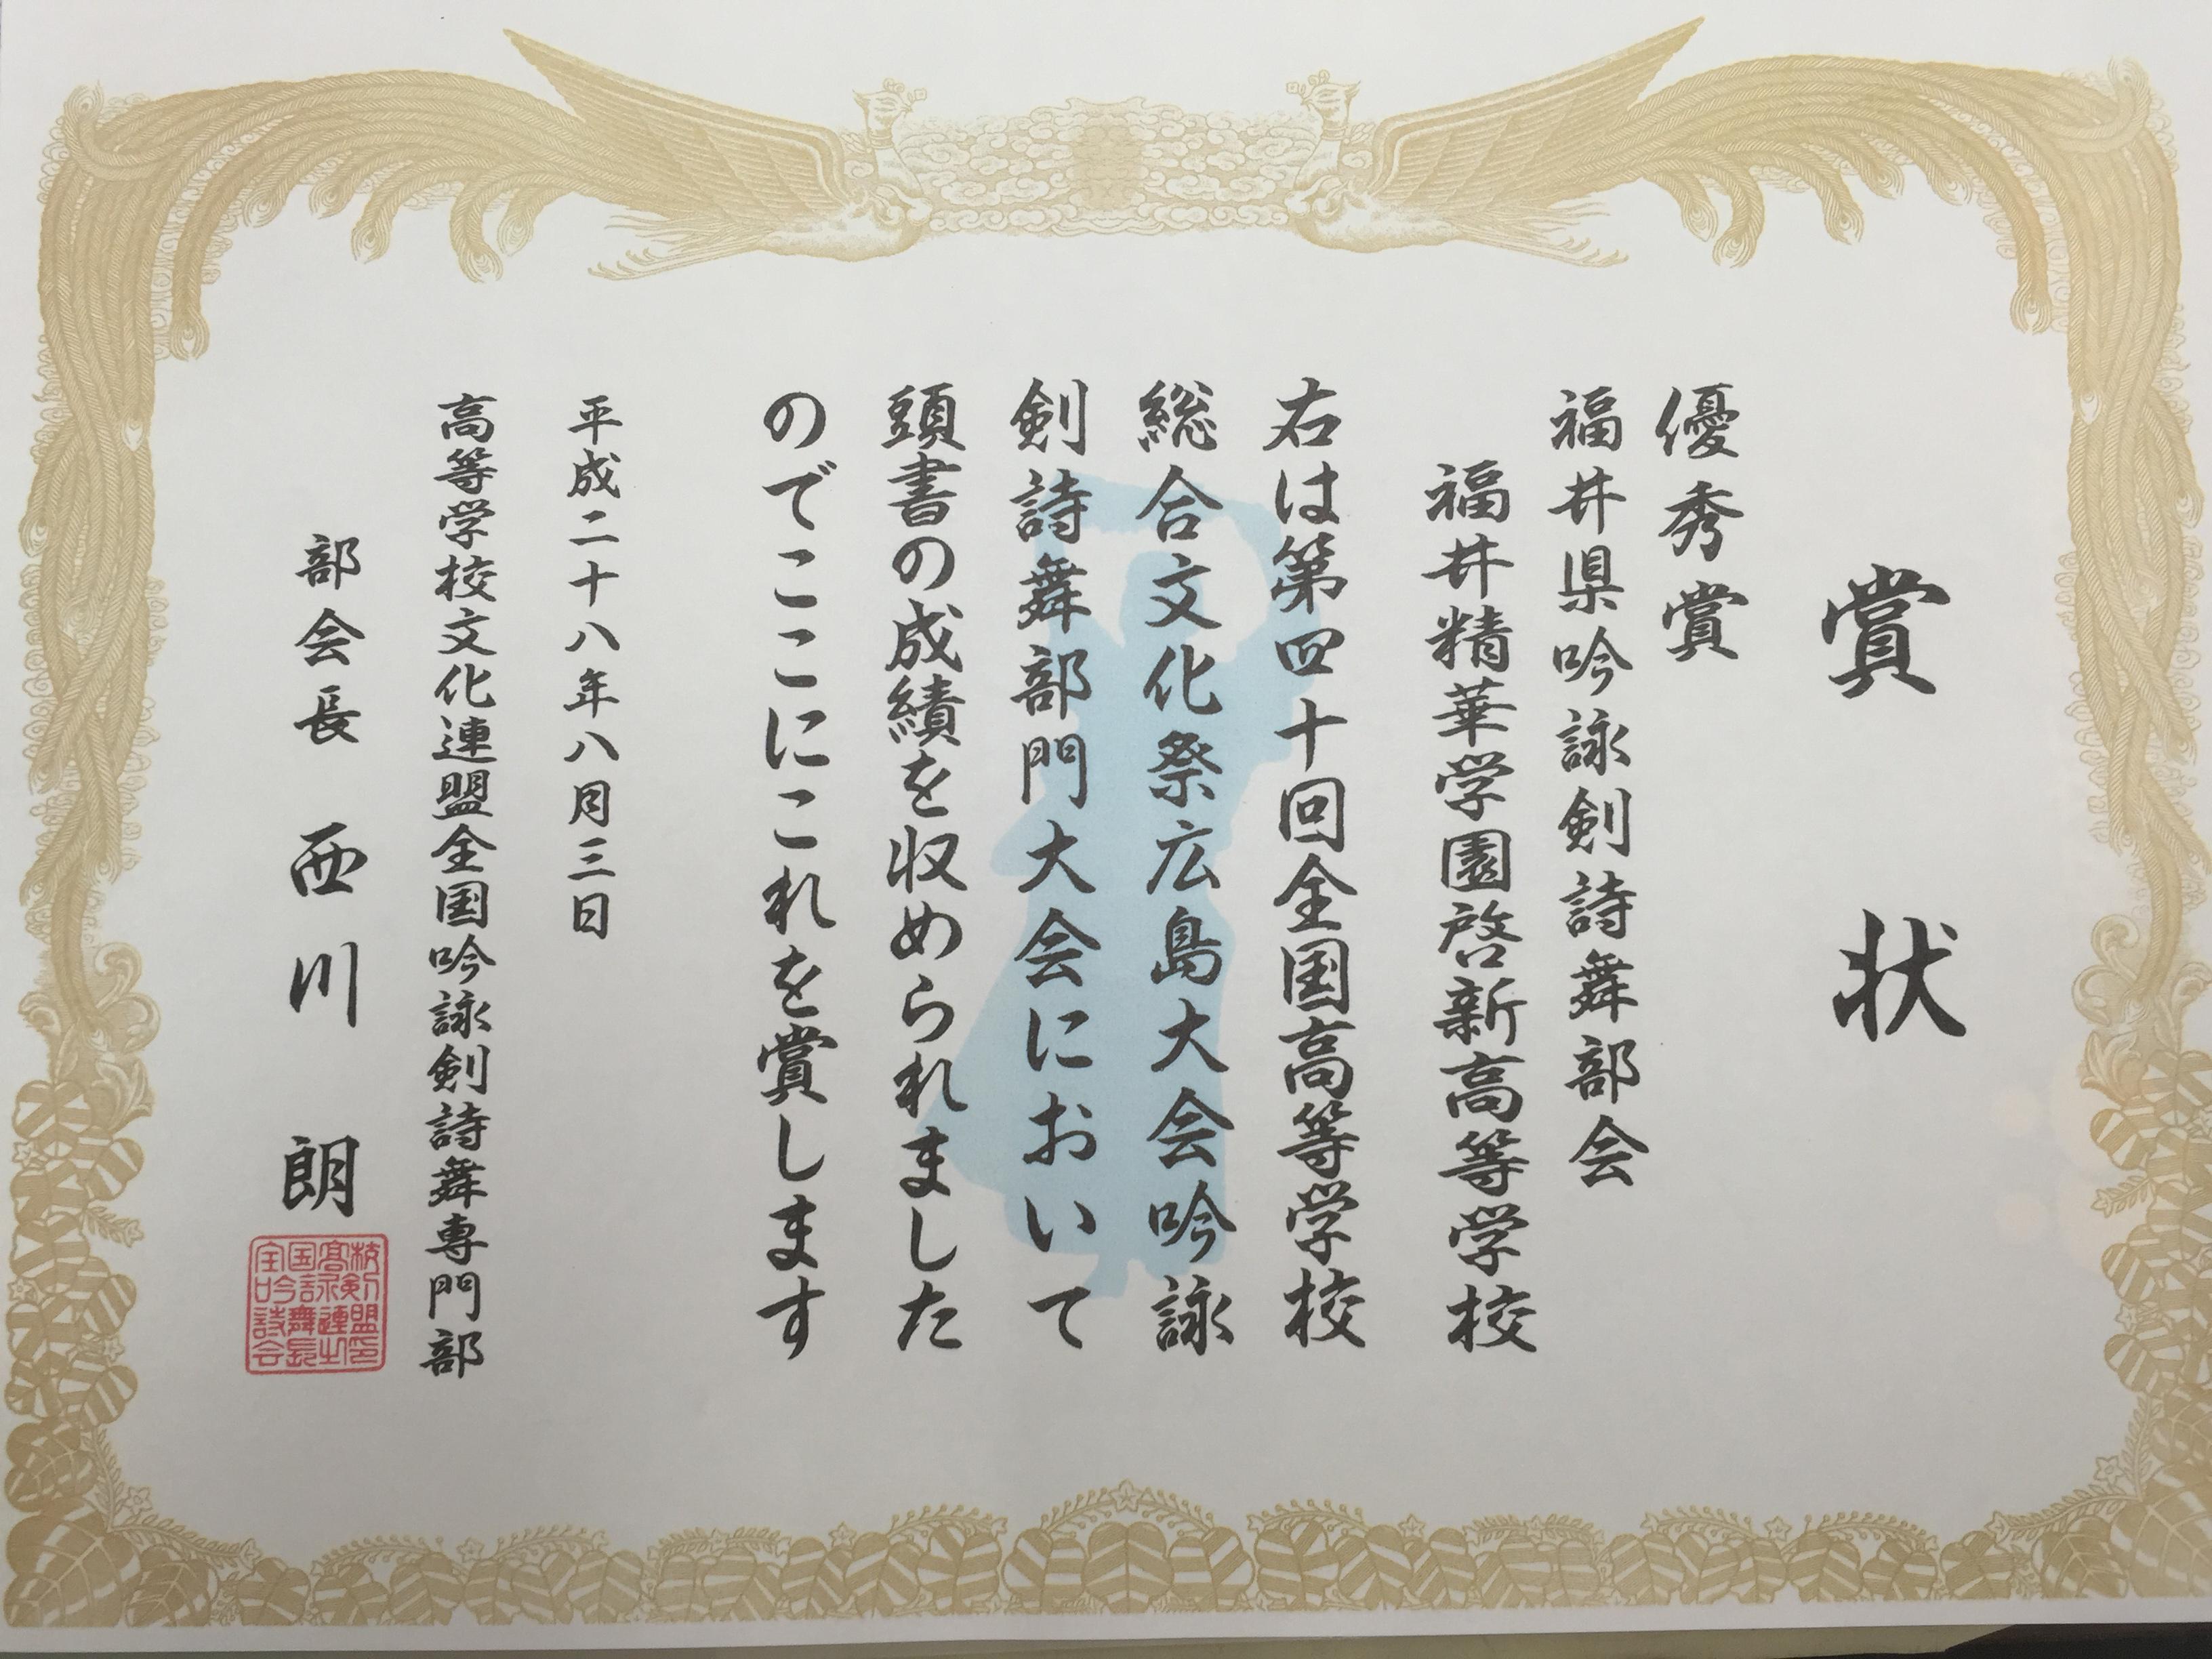 賞状
優秀賞
福井県吟詠剣詩舞部会
福井精華学園啓新高等学校
右は第四十回全国高等学校
総合文化祭広島大会吟詠
剣詩舞部門大会において
頭書の成績を収められました
のでここにこれを賞します
平成二十八年八月三日
高等学校文化連盟全国吟詠剣詩舞専門部
部会長 西川 朗